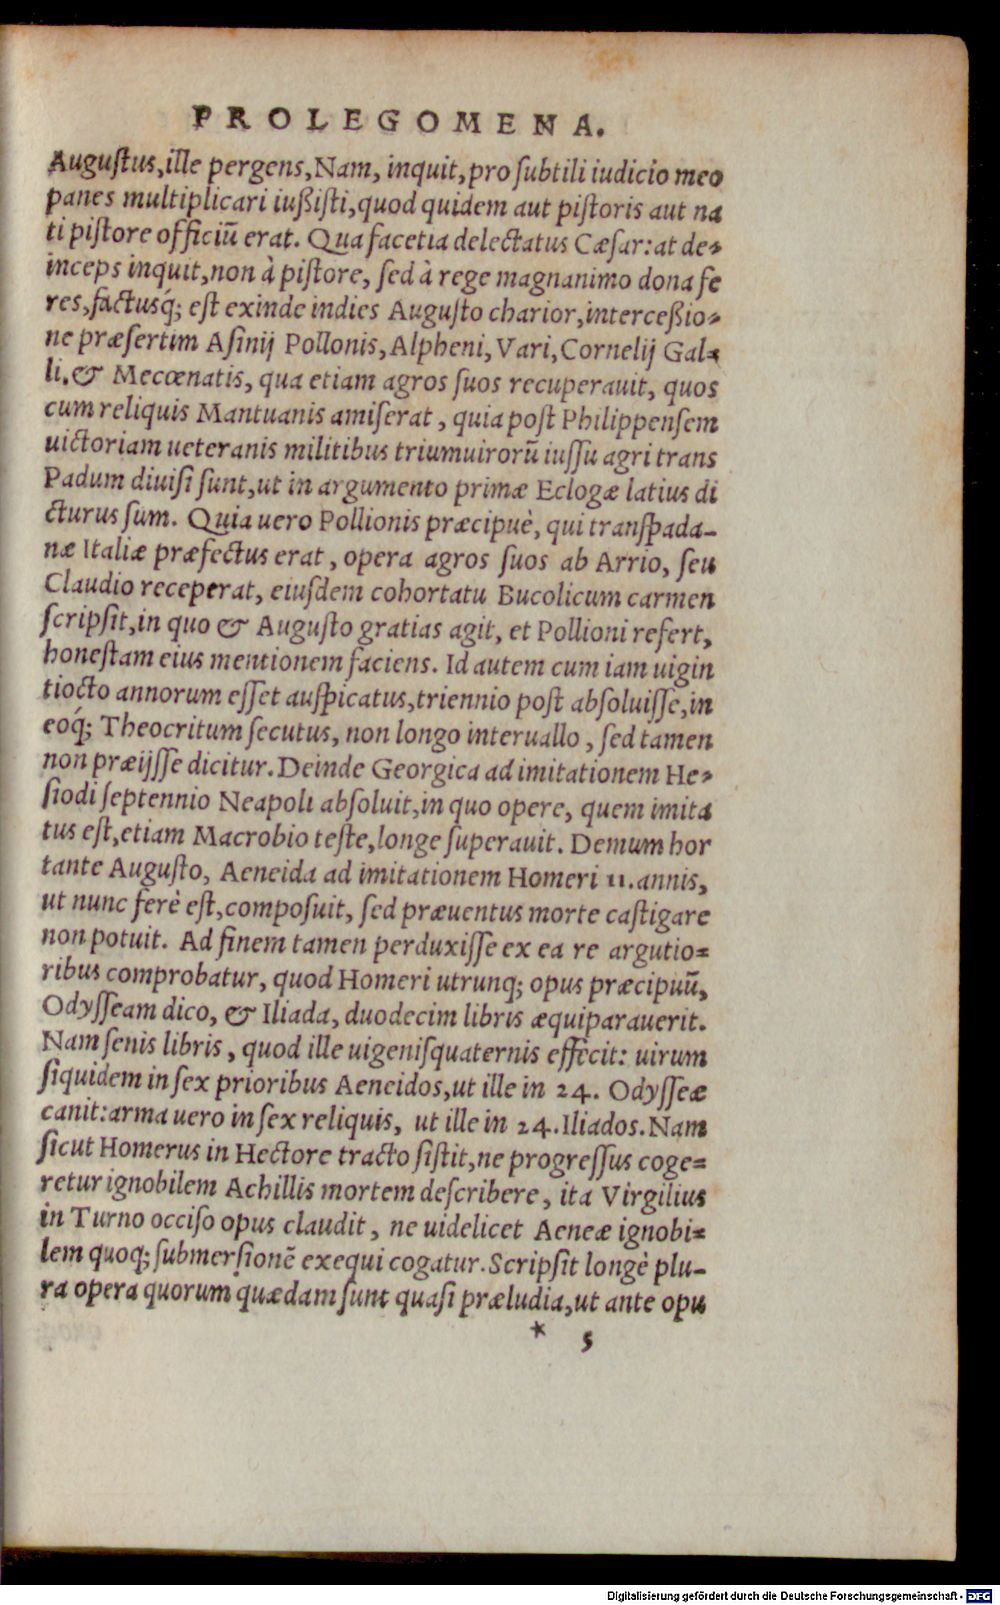 PROLEGOMENA.
Auguſtus, ille pergens, Nam, inquit, pro ſubtili iudicio meo
panes multiplicari iußiſti, quod quidem aut piſtoris aut na
ti piſtore officiũ erat. Qua facetia delectatus Cæſar: at de-
inceps inquit, non à piſtore, ſed à rege magnanimo dona fe
res, factusq́; eſt exinde indies Auguſto charior, interceßio-
ne præſertim Aſinij Pollonis, Alpheni, Vari, Cornelij Gal-
li, & Mecœnatis, qua etiam agros ſuos recuperauit, quos
cum reliquis Mantuanis amiſerat, quia poſt Philippenſem
uictoriam ueteranis militibus triumuirorũ iuſſu agri trans
Padum diuiſi ſunt, ut in argumento primæ Eclogæ latius di
cturus ſum. Quia uero Pollionis præcipuè, qui tranſpada-
næ Italiæ præfectus erat, opera agros ſuos ab Arrio, ſeu
Claudio receperat, eiuſdem cohortatu Bucolicum carmen
ſcripſit, in quo & Auguſto gratias agit, et Pollioni refert,
honeſtam eius mentionem faciens. Id autem cum iam uigin
tiocto annorum eſſet auſpicatus, triennio poſt abſoluiſſe, in
eoq́; Theocritum ſecutus, non longo interuallo, ſed tamen
non præijſſe dicitur. Deinde Georgica ad imitationem He-
ſiodi ſeptennio Neapoli abſoluit, in quo opere, quem imita
tus eſt, etiam Macrobio teſte, longe ſuperauit. Demum hor
tante Auguſto, Aeneida ad imitationem Homeri 11. annis,
ut nunc ferè eſt, compoſuit, ſed præuentus morte caſtigare
non potuit. Ad finem tamen perduxiſſe ex ea re argutio-
ribus comprobatur, quod Homeri utrunq; opus præcipuũ,
Odyſſeam dico, & Iliada, duodecim libris æquiparauerit.
Nam ſenis libris, quod ille uigeniſquaternis effecit: uirum
ſiquidem in ſex prioribus Aeneidos, ut ille in 24. Odyſſeæ
canit: arma uero in ſex reliquis, ut ille in 24. Iliados. Nam
ſicut Homerus in Hectore tracto ſiſtit, ne progreſſus coge-
retur ignobilem Achillis mortem deſcribere, ita Virgilius
in Turno occiſo opus claudit, ne uidelicet Aeneæ ignobi-
lem quoq; ſubmerſionẽ exequi cogatur. Scripſit longè plu-
ra opera quorum quædam ſunt quaſi præludia, ut ante opu
* 5
Digitalisierung gefördert durch die Deutsche Forschungsgemeinschaft - DFG